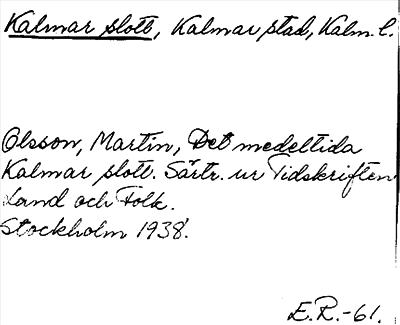 Kalmar slott, Kalmar stad, Kalm. l.
Olsson, Martin, Det medeltida
Kalmar slott. Särtr. ur Tidskriften
Land och Folk.
Stockholm 1938.
E.R.-61.